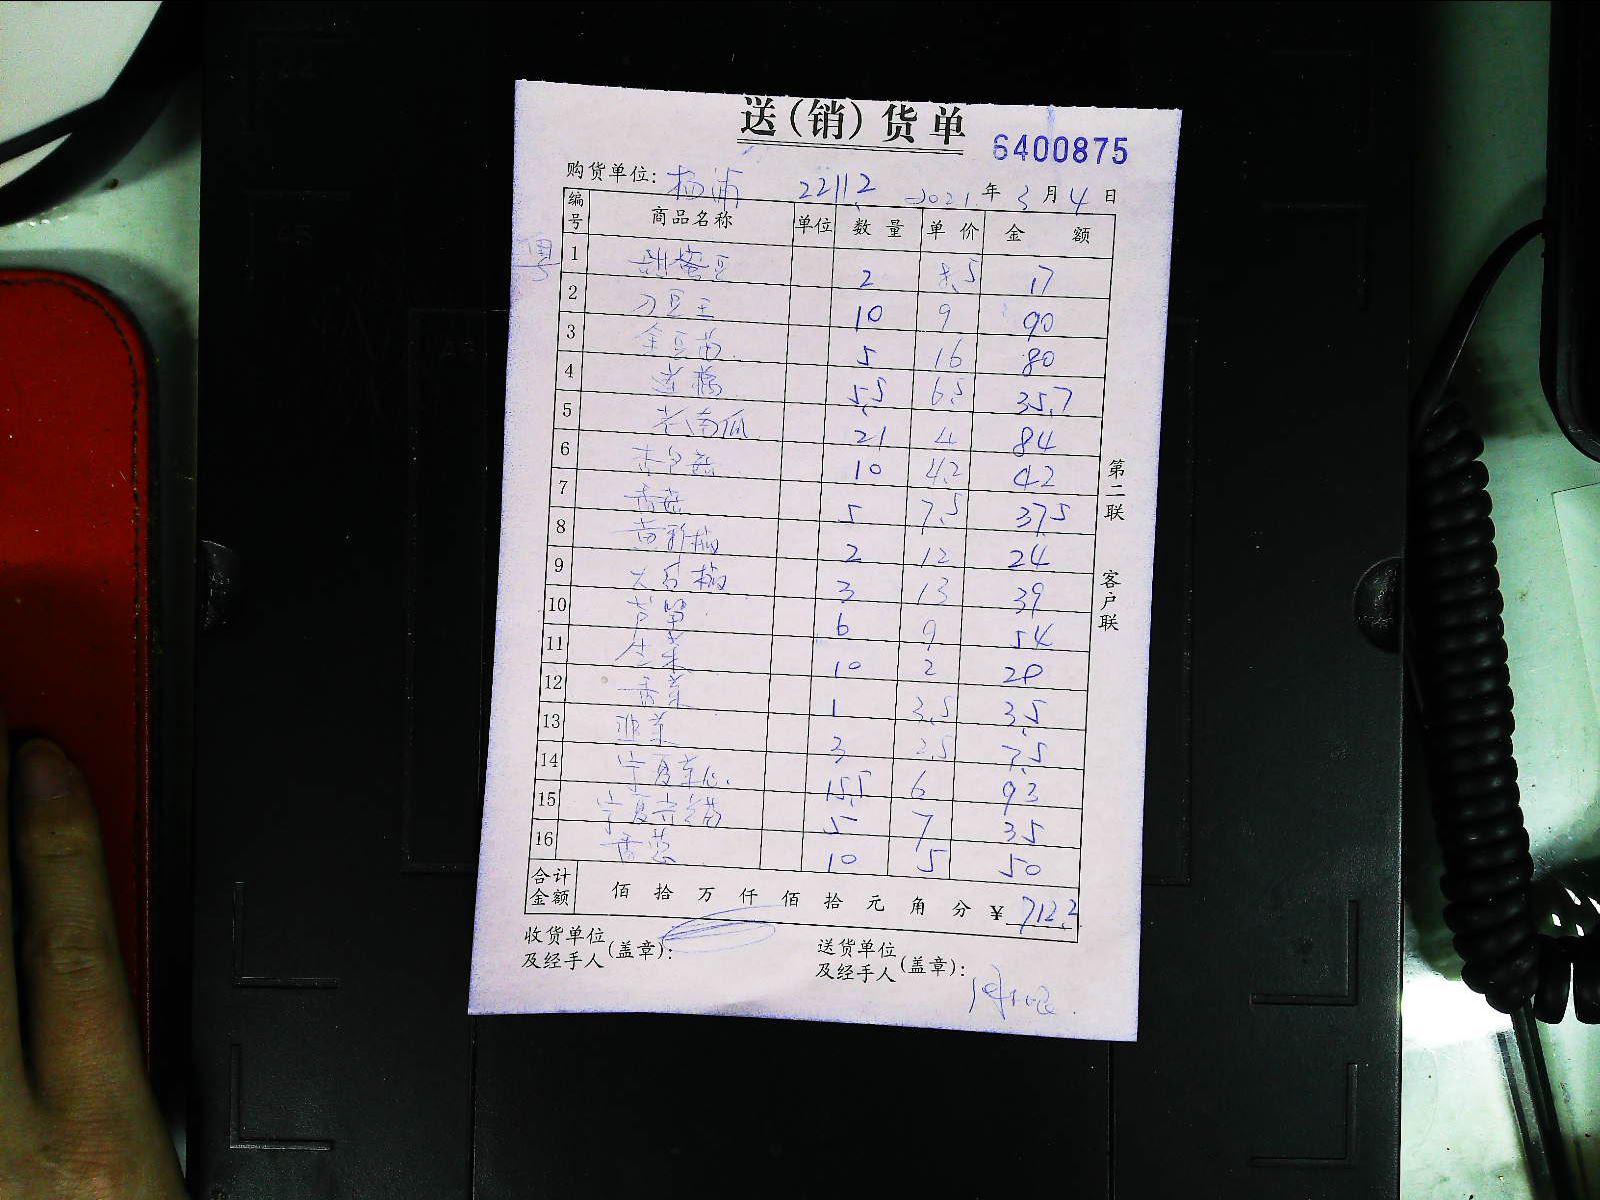 送(销)货单
6400875
购货单位: 杨浦 22112 2021年3月4日
编号 商品名称 单位 数量 单价 金额
粤
1 甜蜜豆 2 8.5 17
2 刀豆王 10 9 90
3 金豆苗 5 16 80
4 5.5 6.5 35.7
5 老南瓜 21 4 84
6 杏包菇 10 4.2 42
7 香菇 5 7.5 37.5
8 黄彩椒 2 12 24
9 大红椒 3 13 39
10 芦笋 6 9 54
11 生菜 10 2 20
12 香菜 1 3.5 3.5
13 韭菜 3 2.5 7.5
14 宁夏菜心 15.5 6 93
15 宁夏芥兰苗 5 7 35
16 香葱 10 5 50
合计金额 佰 拾 万 仟 佰 拾 元 角 分 ¥ 712.2
收货单位及经手人(盖章):
送货单位及经手人(盖章):
第二联 客户联